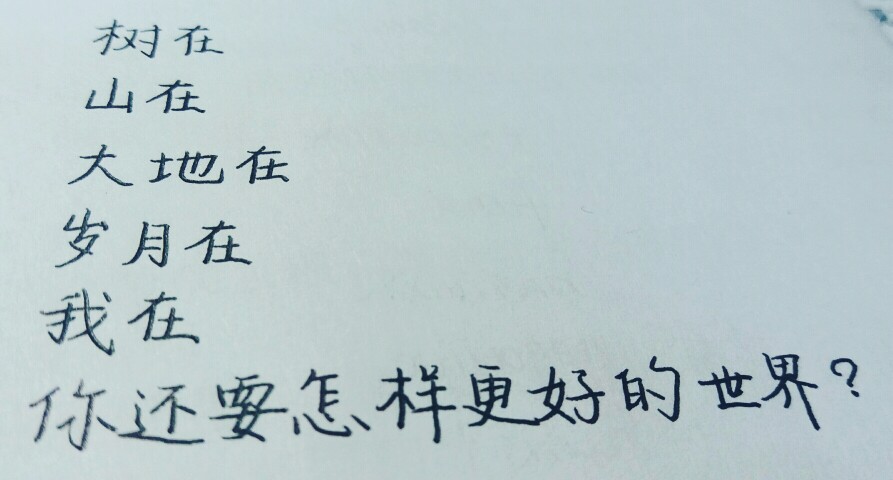 树在
山在
大地在
岁月在
我在
你还要怎样更好的世界?